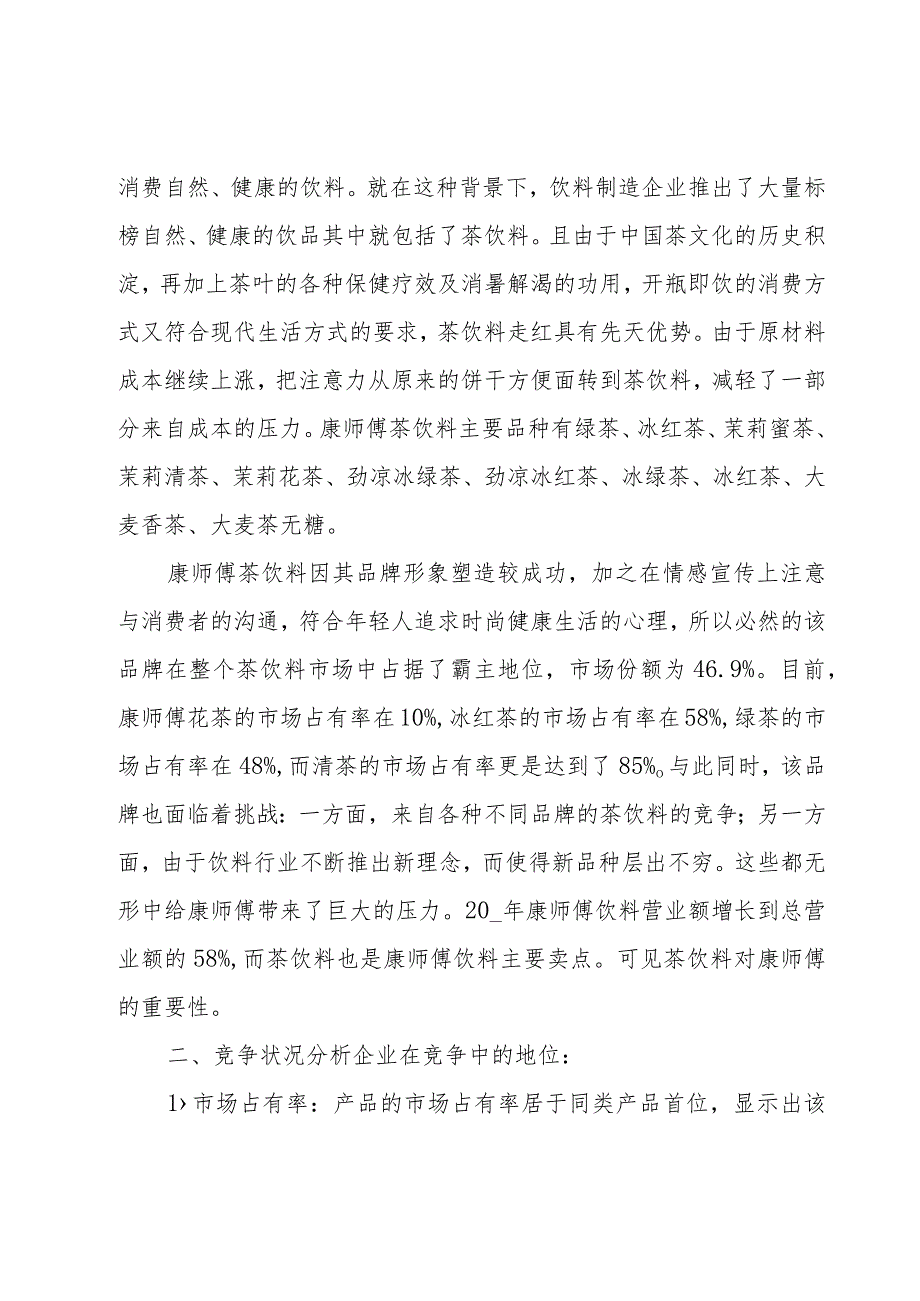 消费自然、健康的饮料。就在这种背景下，饮料制造企业推出了大量标
榜自然、健康的饮品其中就包括了茶饮料。且由于中国茶文化的历史积
淀，再加上茶叶的各种保健疗效及消暑解渴的功用，开瓶即饮的消费方
式又符合现代生活方式的要求，茶饮料走红具有先天优势。由于原材料
成本继续上涨，把注意力从原来的饼干方便面转到茶饮料，减轻了一部
分来自成本的压力。康师傅茶饮料主要品种有绿茶、冰红茶、茉莉蜜茶、
茉莉清茶、茉莉花茶、劲凉冰绿茶、劲凉冰红茶、冰绿茶、冰红茶、大
麦香茶、大麦茶无糖。
康师傅茶饮料因其品牌形象塑造较成功，加之在情感宣传上注意
与消费者的沟通，符合年轻人追求时尚健康生活的心理，所以必然的该
品牌在整个茶饮料市场中占据了霸主地位，市场份额为46.9%。目前，
康师傅花茶的市场占有率在10%,冰红茶的市场占有率在58%,绿茶的市
场占有率在48%,而清茶的市场占有率更是达到了85%。与此同时，该品
牌也面临着挑战：一方面，来自各种不同品牌的茶饮料的竞争；另一方
面，由于饮料行业不断推出新理念，而使得新品种层出不穷。这些都无
形中给康师傅带来了巨大的压力。20_年康师傅饮料营业额增长到总营
业额的58%,而茶饮料也是康师傅饮料主要卖点。可见茶饮料对康师傅
的重要性。
二、竞争状况分析企业在竞争中的地位：
1›市场占有率：产品的市场占有率居于同类产品首位，显示出该